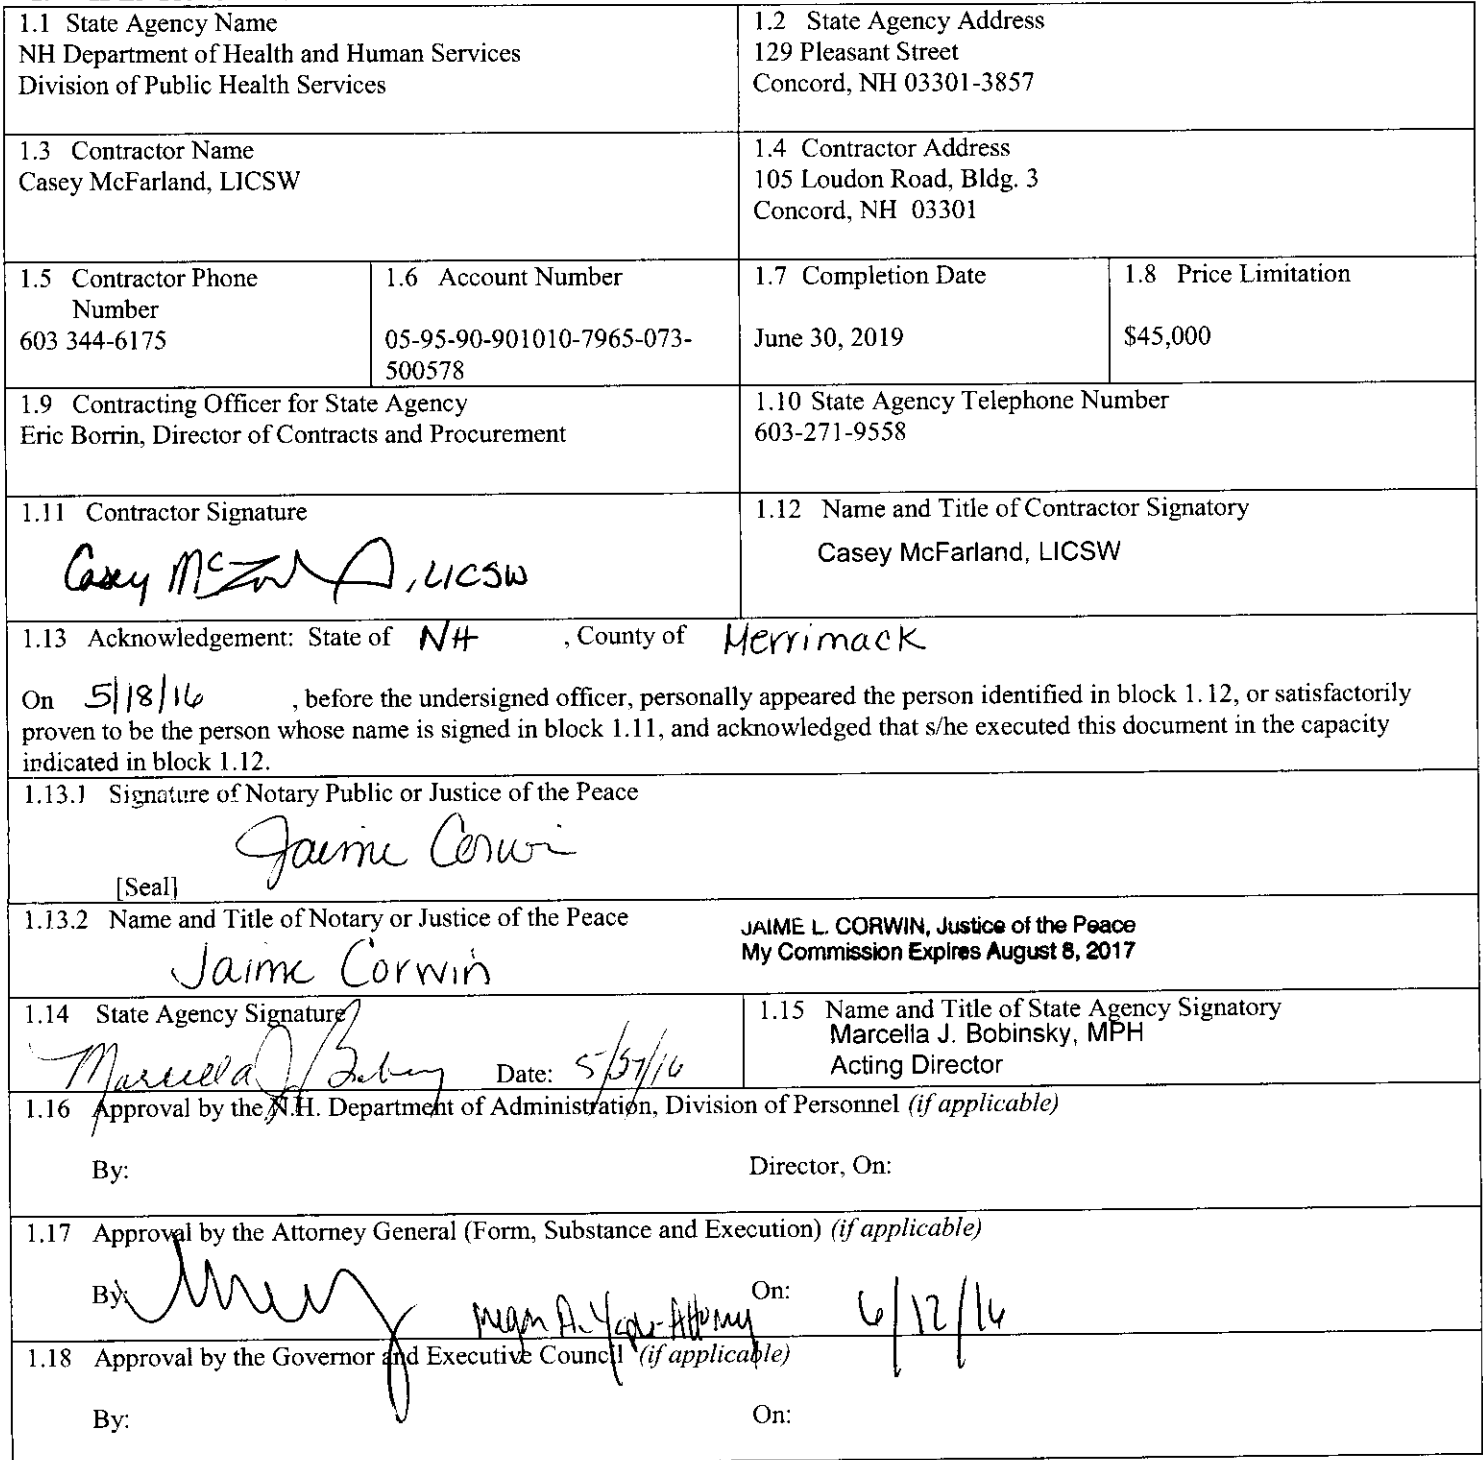 1.1 State Agency Name
NH Department of Health and Human Services
Division of Public Health Services
1.2 State Agency Address
129 Pleasant Street
Concord, NH 03301-3857
1.3 Contractor Name
Casey McFarland, LICSW
1.4 Contractor Address
105 Loudon Road, Bldg. 3
Concord, NH 03301
1.5 Contractor Phone
Number
603 344-6175
1.6 Account Number
05-95-90-901010-7965-073-
500578
1.7 Completion Date
June 30, 2019
1.8 Price Limitation
$45,000
1.9 Contracting Officer for State Agency
Eric Borrin, Director of Contracts and Procurement
1.10 State Agency Telephone Number
603-271-9558
1.11 Contractor Signature
Casey , LICSW
1.12 Name and Title of Contractor Signatory
Casey McFarland, LICSW
1.13 Acknowledgement: State of NH , County of Merrimack
On 5/18/16 , before the undersigned officer, personally appeared the person identified in block 1.12, or satisfactorily
proven to be the person whose name is signed in block 1.11, and acknowledged that s/he executed this document in the capacity
indicated in block 1.12.
1.13.1 Signature of Notary Public or Justice of the Peace
Jaime Corwin
[Seal]
1.13.2 Name and Title of Notary or Justice of the Peace
Jaime Corwin
JAIME L. CORWIN, Justice of the Peace
My Commission Expires August 8, 2017
1.14 State Agency Signature
Marcella J Date:
1.15 Name and Title of State Agency Signatory
Marcella J. Bobinsky, MPH
Acting Director
1.16 Approval by the N.H. Department of Administration, Division of Personnel (if applicable)
By: Director, On:
1.17 Approval by the Attorney General (Form, Substance and Execution) (if applicable)
By: Megan A. - Attorney On: 6/12/16
1.18 Approval by the Governor and Executive Council (if applicable)
By: On: